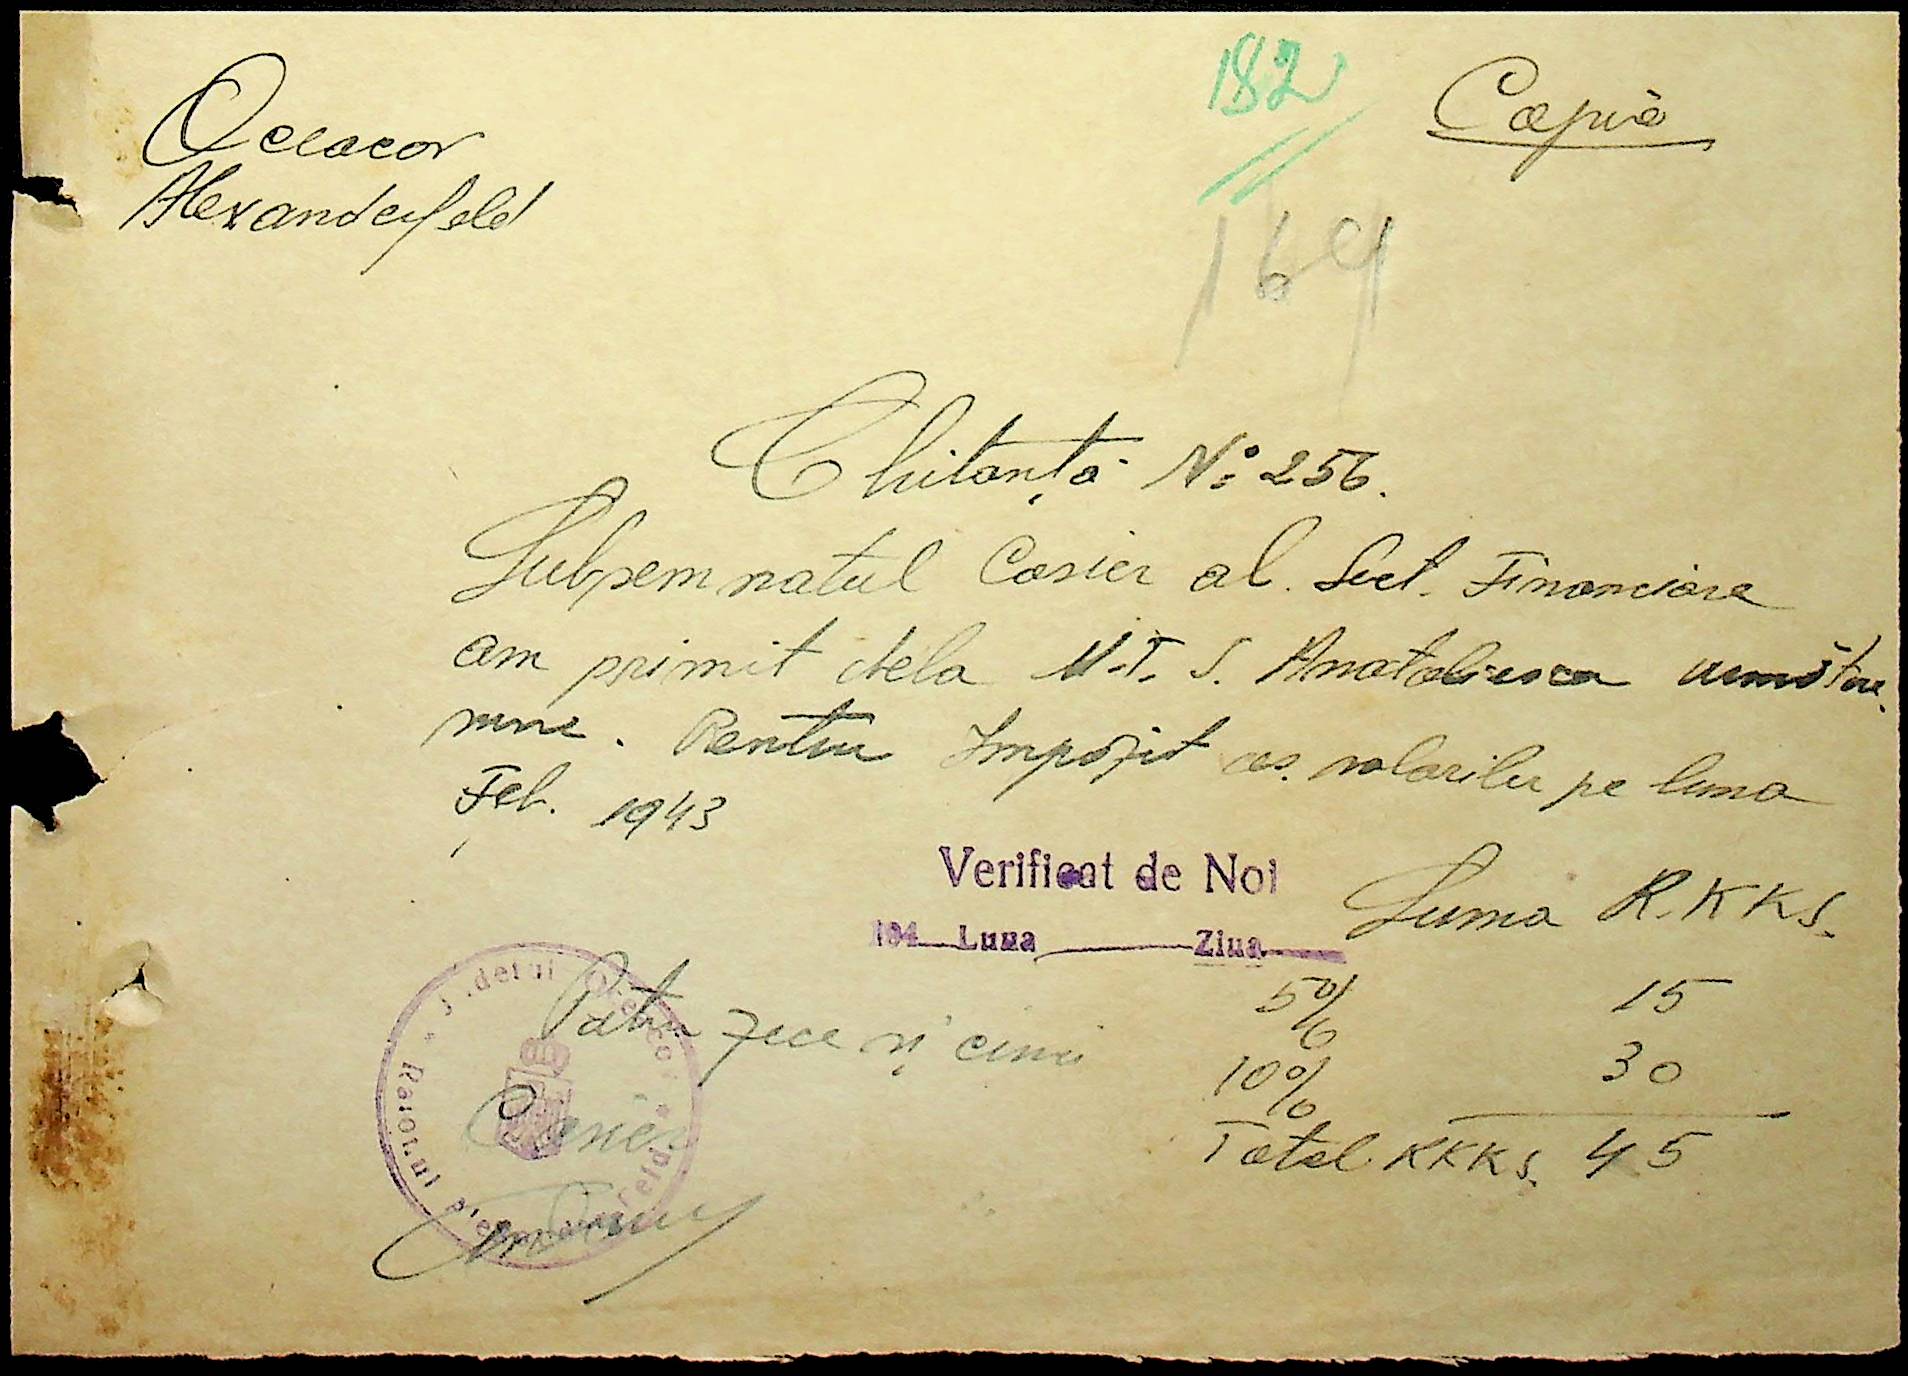 182
Copie
Oceacov
Alexanderfeld
169
Chitanță No 256.
Subsemnatul Casier al. Sect. Financiare
am primit dela M.T.S. Anatolievca următoarea
sume. Pentru Impozit as. salarilor pe luna
Feb. 1943
Verificat de Noi
194 Luna Ziua
Suma R.KKS.
5% 15
Patru zece și cinci
10% 30
Total RKKS. 45
Casier
Județul Oceacov
Raionul Alexanderfeld